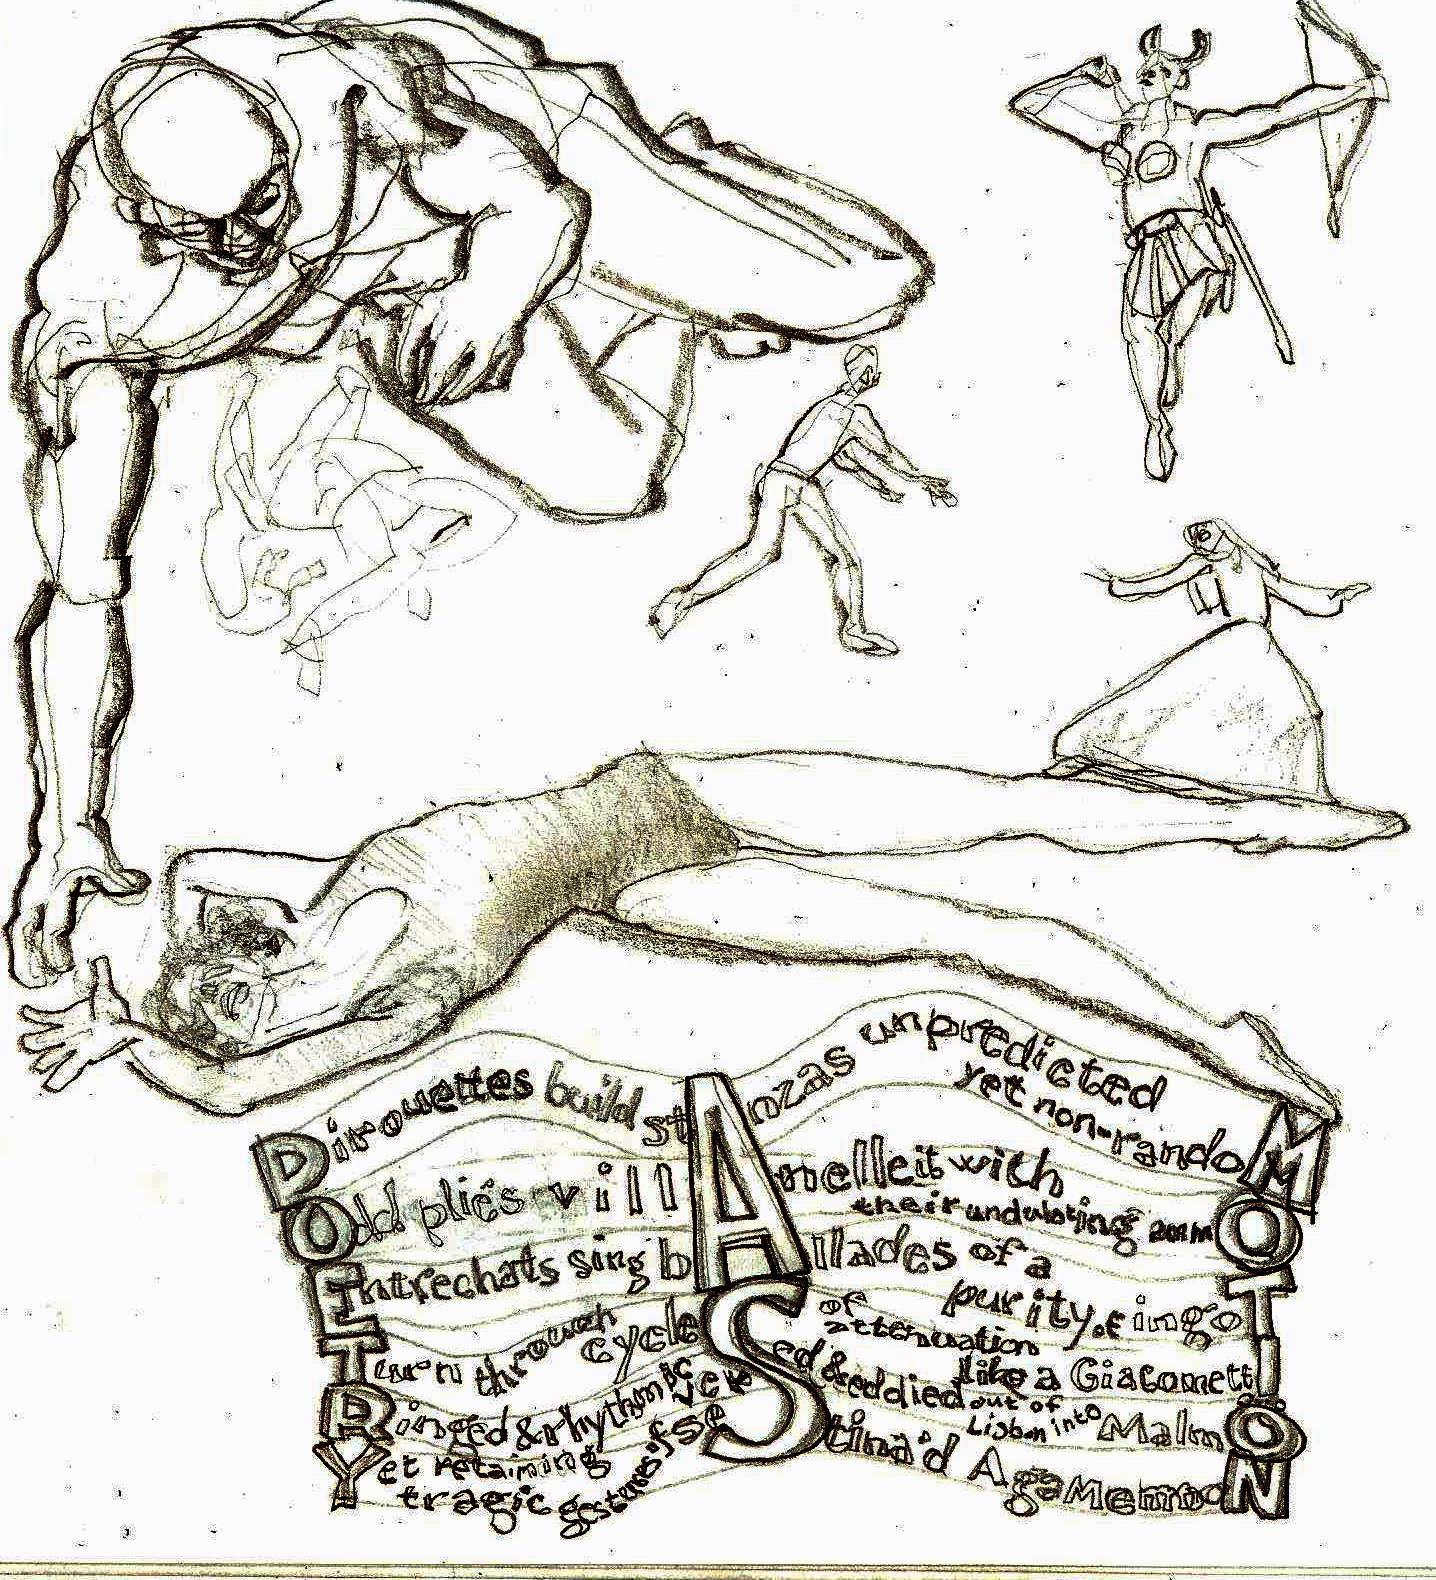 Pirouettes build stAnzas unpredicted
yet non-randoM
Odd pliés villAnelleit with
their undulating ammO
Entrechats sing bAllades of a
purity.
Turn through cycleS of attenuation
like a GiacomettI
Ringed & rhythmic verSed & eddied out of
Lisbon into MalmÖ
Yet retaining
tragic gestures if seStina'd AgaMemnoN